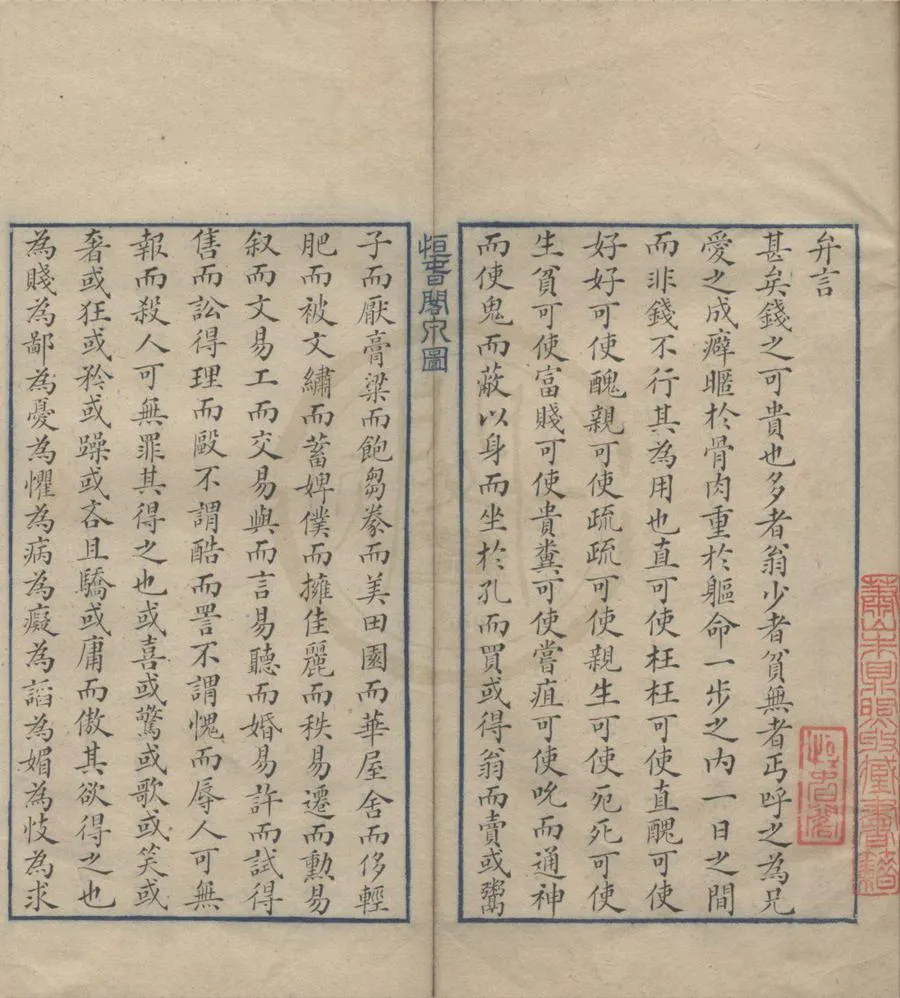 弁言
甚矣錢之可貴也多者翁少者貧無者丐呼之為兄
愛之成癖暱於骨肉重於軀命一步之內一日之間
而非錢不行其為用也直可使枉枉可使直醜可使
好好可使醜親可使疏疏可使親生可使死死可使
生貧可使富賤可使貴糞可使嘗疽可使吮而通神
而使鬼而蔽以身而坐於孔而買或得翁而賣或鬻
恒書閣泉圖
子而厭膏粱而飽芻豢而美田園而華屋舍而侈輕
肥而被文繡而蓄婢僕而擁佳麗而秩易遷而勳易
叙而文易工而交易與而言易聽而婚易許而試得
售而訟得理而毆不謂酷而詈不謂愧而辱人可無
報而殺人可無罪其得之也或喜或驚或歌或笑或
奢或狂或矜或躁或吝且驕或庸而傲其欲得之也
為賤為鄙為憂為懼為病為癡為諂為媚為忮為求